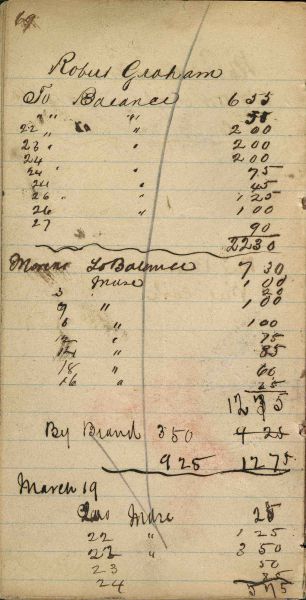 69
Robert Graham
To Balance 6 55
" " 50
22 " " 2 00
23 " " 2 00
24 2 00
24 " " 75
24 " 45
26 " " 1 25
26 " 1 00
27 90
22 30
To Balance 7 30
Muse 1 00
3 20
9 " 1 00
6 " 1 00
12 " 75
14 " 85
18 " 60
16 " 25
12
By Brand 3 50 4 25
9 25 12 75
March 19
Muse 25
22 " 1 25
22 " 3 50
23 50
24 25
5 75